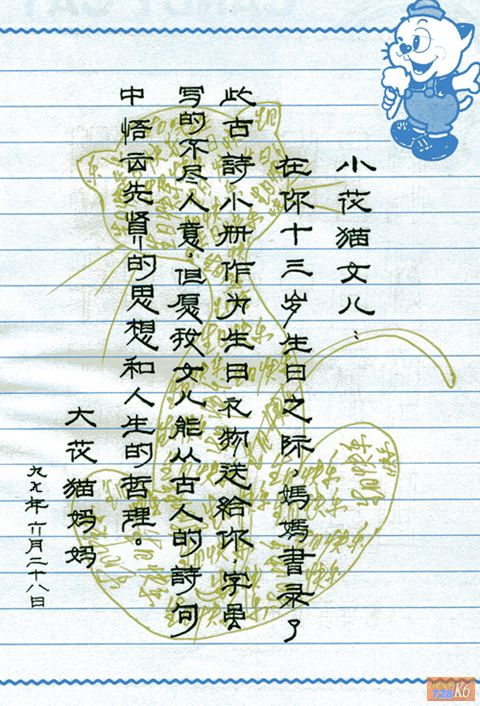 小花猫女儿：
在你十三岁生日之际，媽媽書录了
此古詩小册作为生日礼物送给你，字虽
写的不尽人意，但愿我女儿能从古人的詩句
中悟出先贤的思想和人生的哲理。
大花猫妈妈
九七年六月二十八日
生日快乐
728 K6